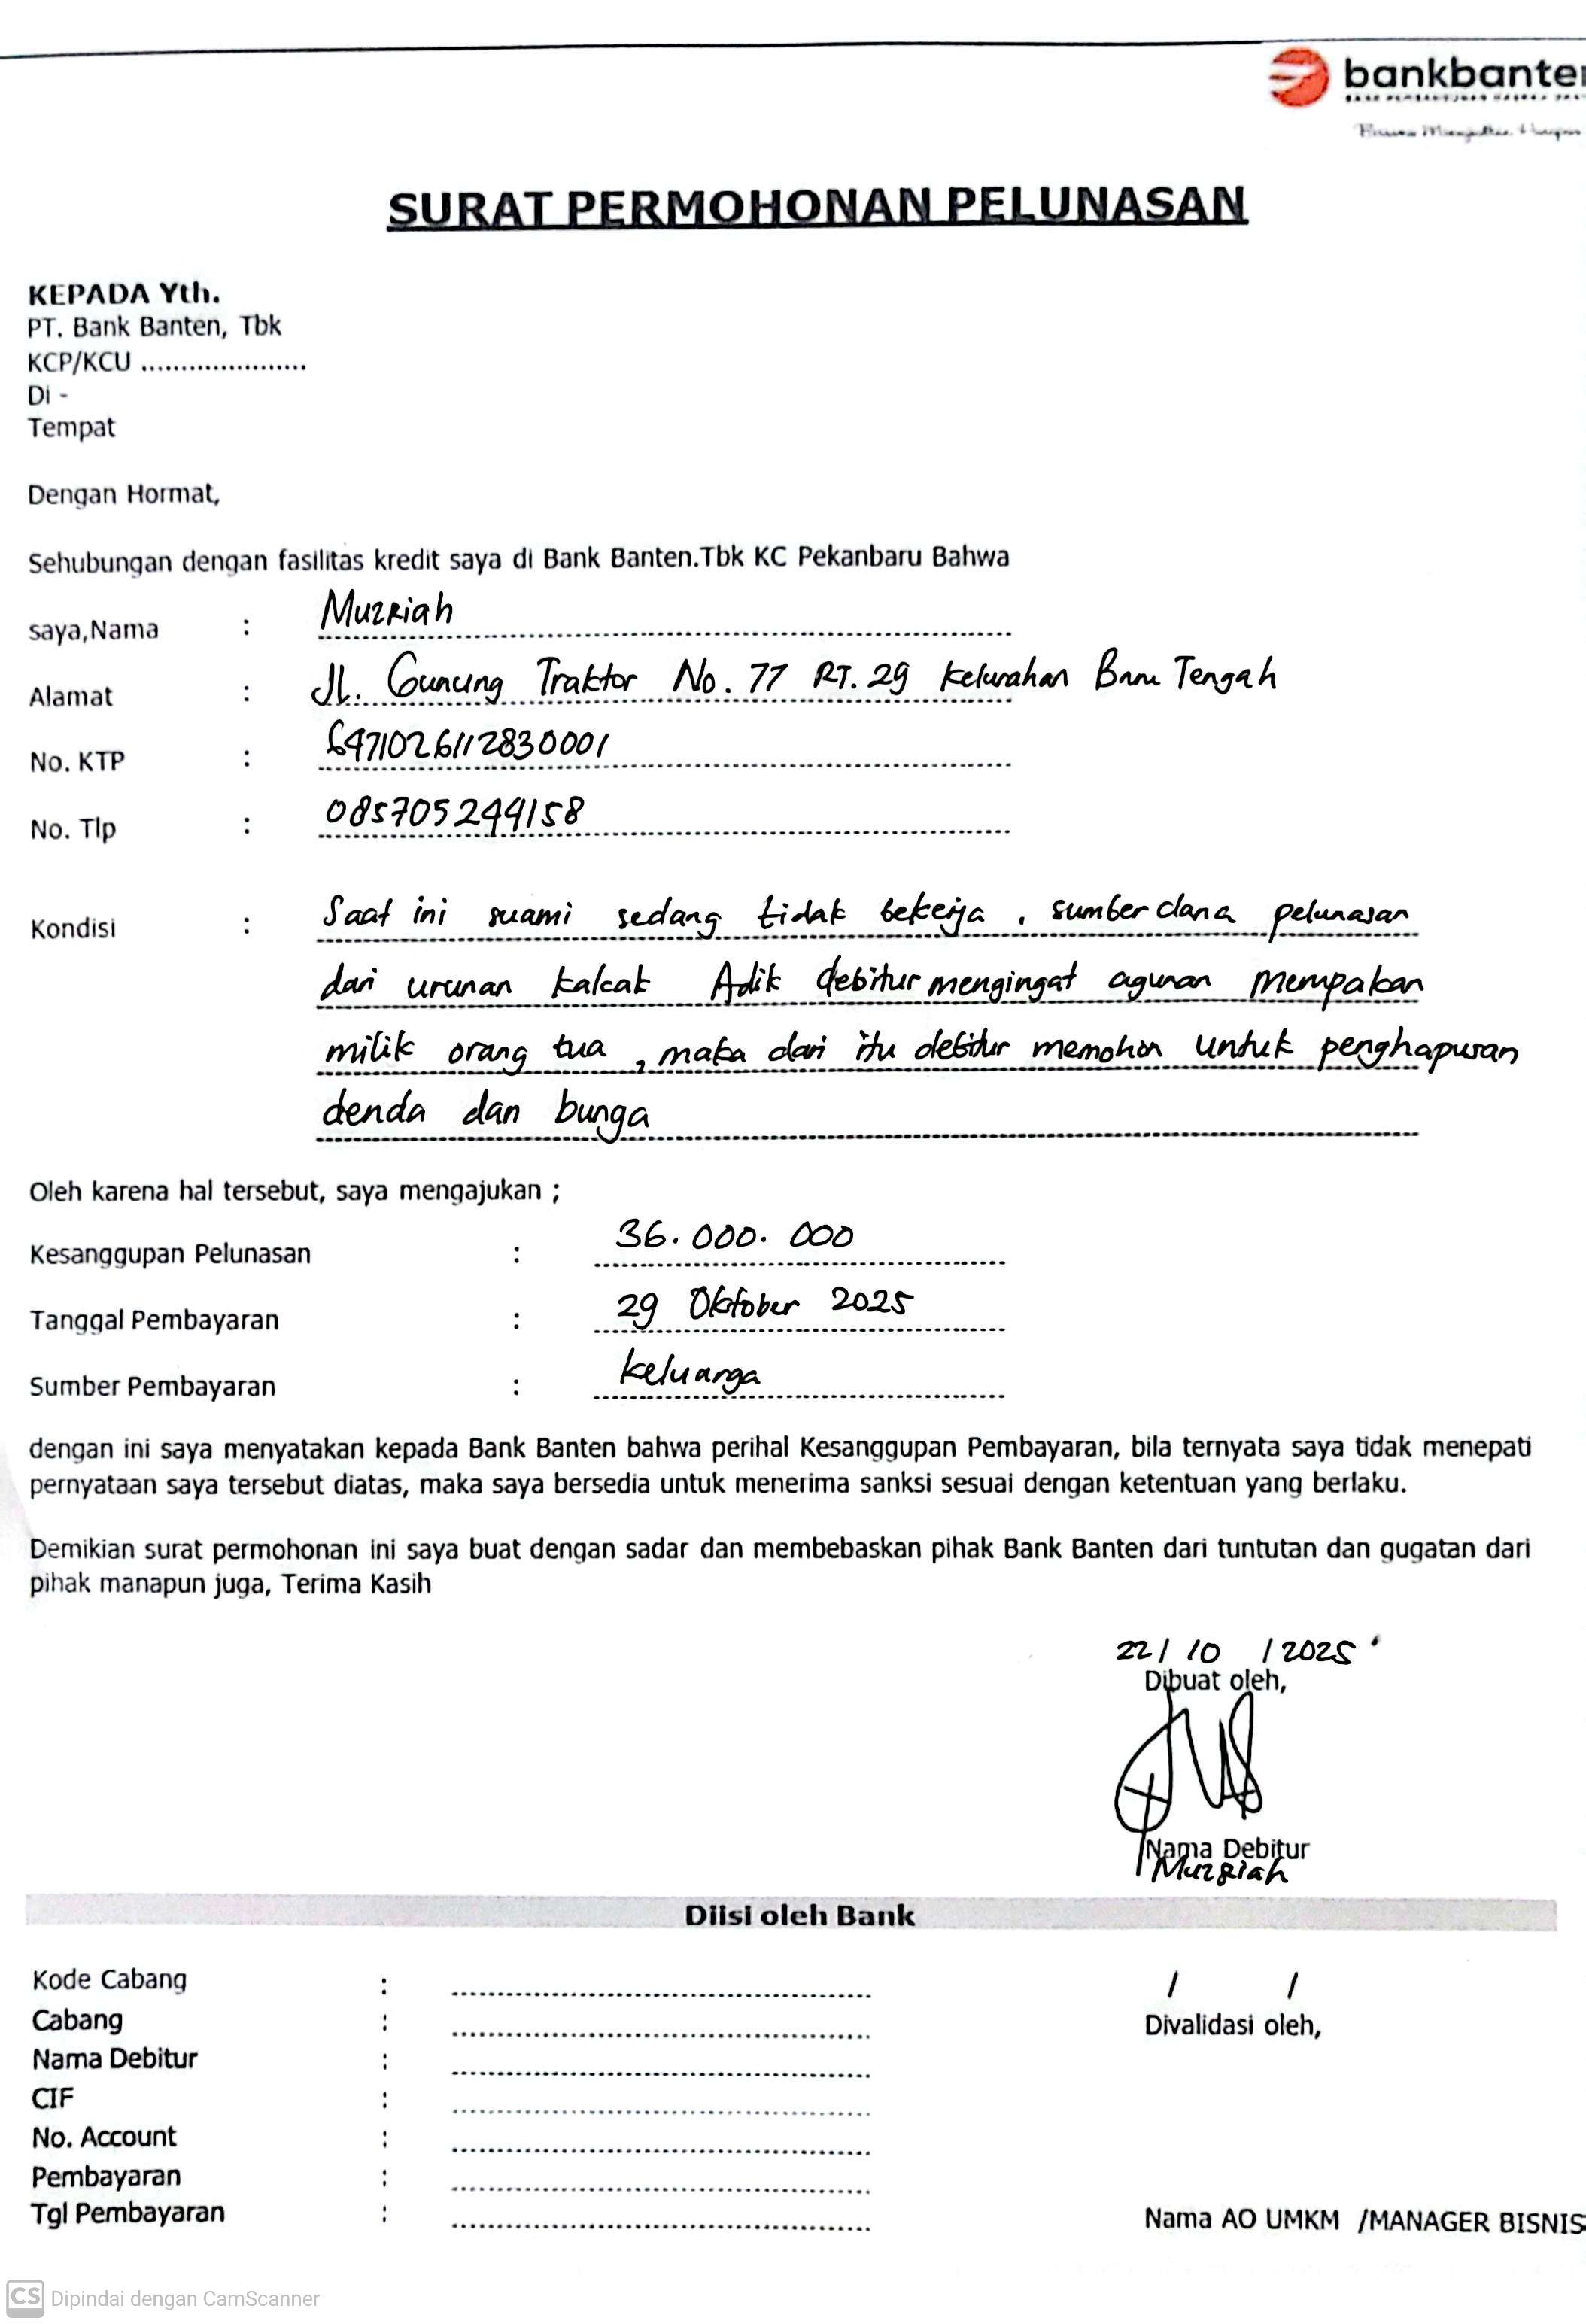 bankbanten
SURAT PERMOHONAN PELUNASAN
KEPADA Yth.
PT. Bank Banten, Tbk
KCP/KCU .....................
Di -
Tempat
Dengan Hormat,
Sehubungan dengan fasilitas kredit saya di Bank Banten.Tbk KC Pekanbaru Bahwa
saya,Nama : Muzriah
Alamat : Jl. Gunung Traktor No. 77 RT. 29 Kelurahan Baru Tengah
No. KTP : 6471026112830001
No. Tlp : 085705244158
Kondisi : Saat ini suami sedang tidak bekerja , sumber dana pelunasan
dari urunan kakak Adik debitur mengingat agunan merupakan
milik orang tua , maka dari itu debitur memohon untuk penghapusan
denda dan bunga
Oleh karena hal tersebut, saya mengajukan ;
Kesanggupan Pelunasan : 36.000.000
Tanggal Pembayaran : 29 Oktober 2025
Sumber Pembayaran : keluarga
dengan ini saya menyatakan kepada Bank Banten bahwa perihal Kesanggupan Pembayaran, bila ternyata saya tidak menepati
pernyataan saya tersebut diatas, maka saya bersedia untuk menerima sanksi sesuai dengan ketentuan yang berlaku.
Demikian surat permohonan ini saya buat dengan sadar dan membebaskan pihak Bank Banten dari tuntutan dan gugatan dari
pihak manapun juga, Terima Kasih
22/ 10 /2025
Dibuat oleh,
Nama Debitur
Muzriah
Diisi oleh Bank
Kode Cabang : / /
Cabang : Divalidasi oleh,
Nama Debitur :
CIF :
No. Account :
Pembayaran :
Tgl Pembayaran : Nama AO UMKM /MANAGER BISNIS
CS Dipindai dengan CamScanner